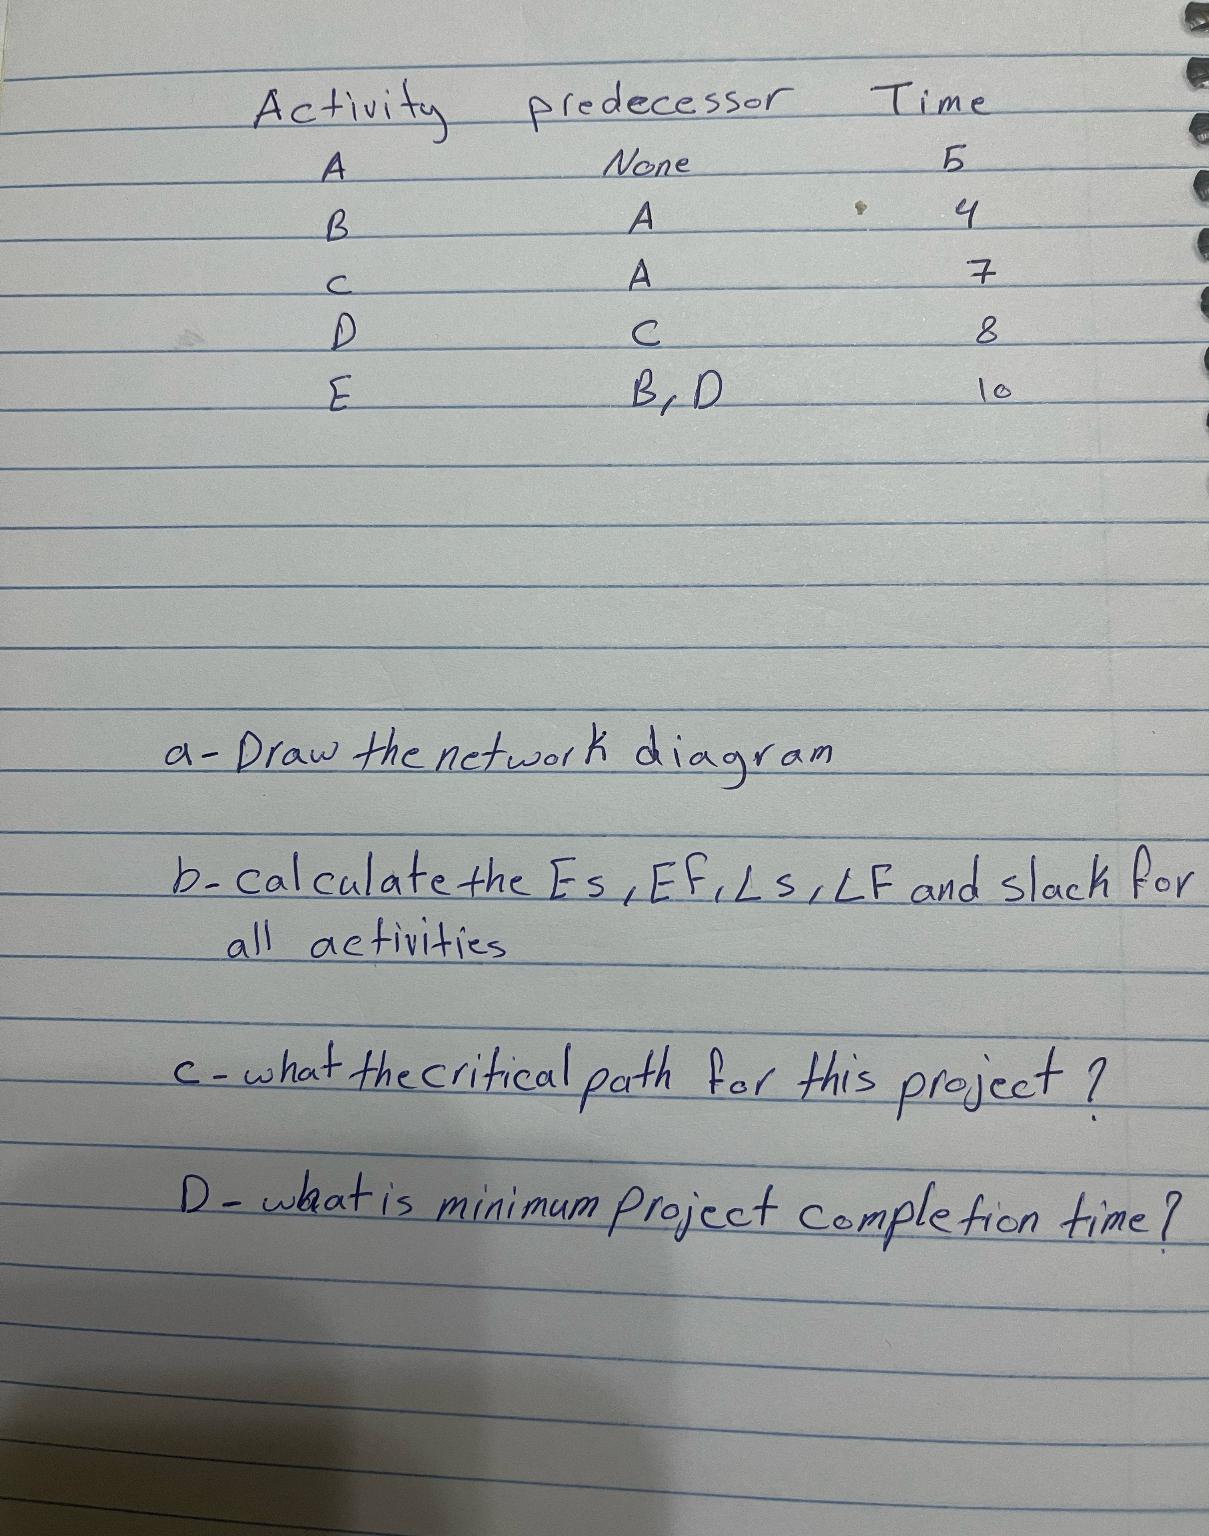 Activity predecessor Time
A None 5
B A 4
C A 7
D C 8
E B, D 10
a- Draw the network diagram
b- calculate the Es, EF, LS, LF and slack for
all activities
c- what the critical path for this project?
D- what is minimum project completion time?